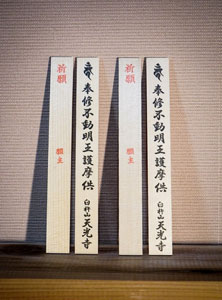 祈願
願主
奉修不動明王護摩供
臼杵山天光寺
祈願
願主
奉修不動明王護摩供
臼杵山天光寺